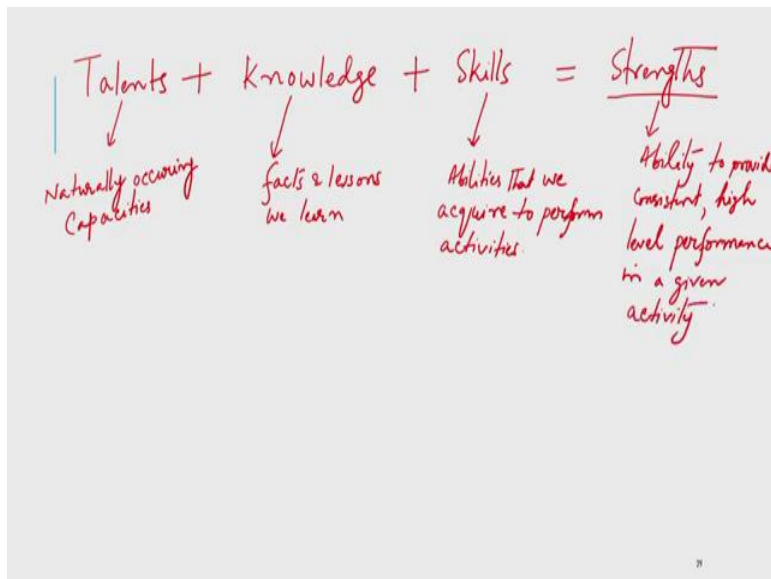 Talents + Knowledge + Skills = Strengths
Naturally occuring
Capacities
facts & lessons
we learn
Abilities that we
acquire to perform
activities.
Ability to provid
consistent, high
level performanc
in a given
activity.